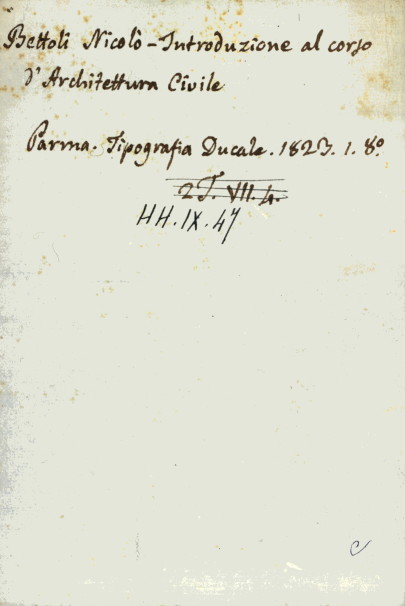 Bettoli Nicolò - Introduzione al corso
d'Architettura Civile
Parma. Tipografia Ducale. 1823. 1. 8º
2 T. VII. 4.
HH. IX. 47